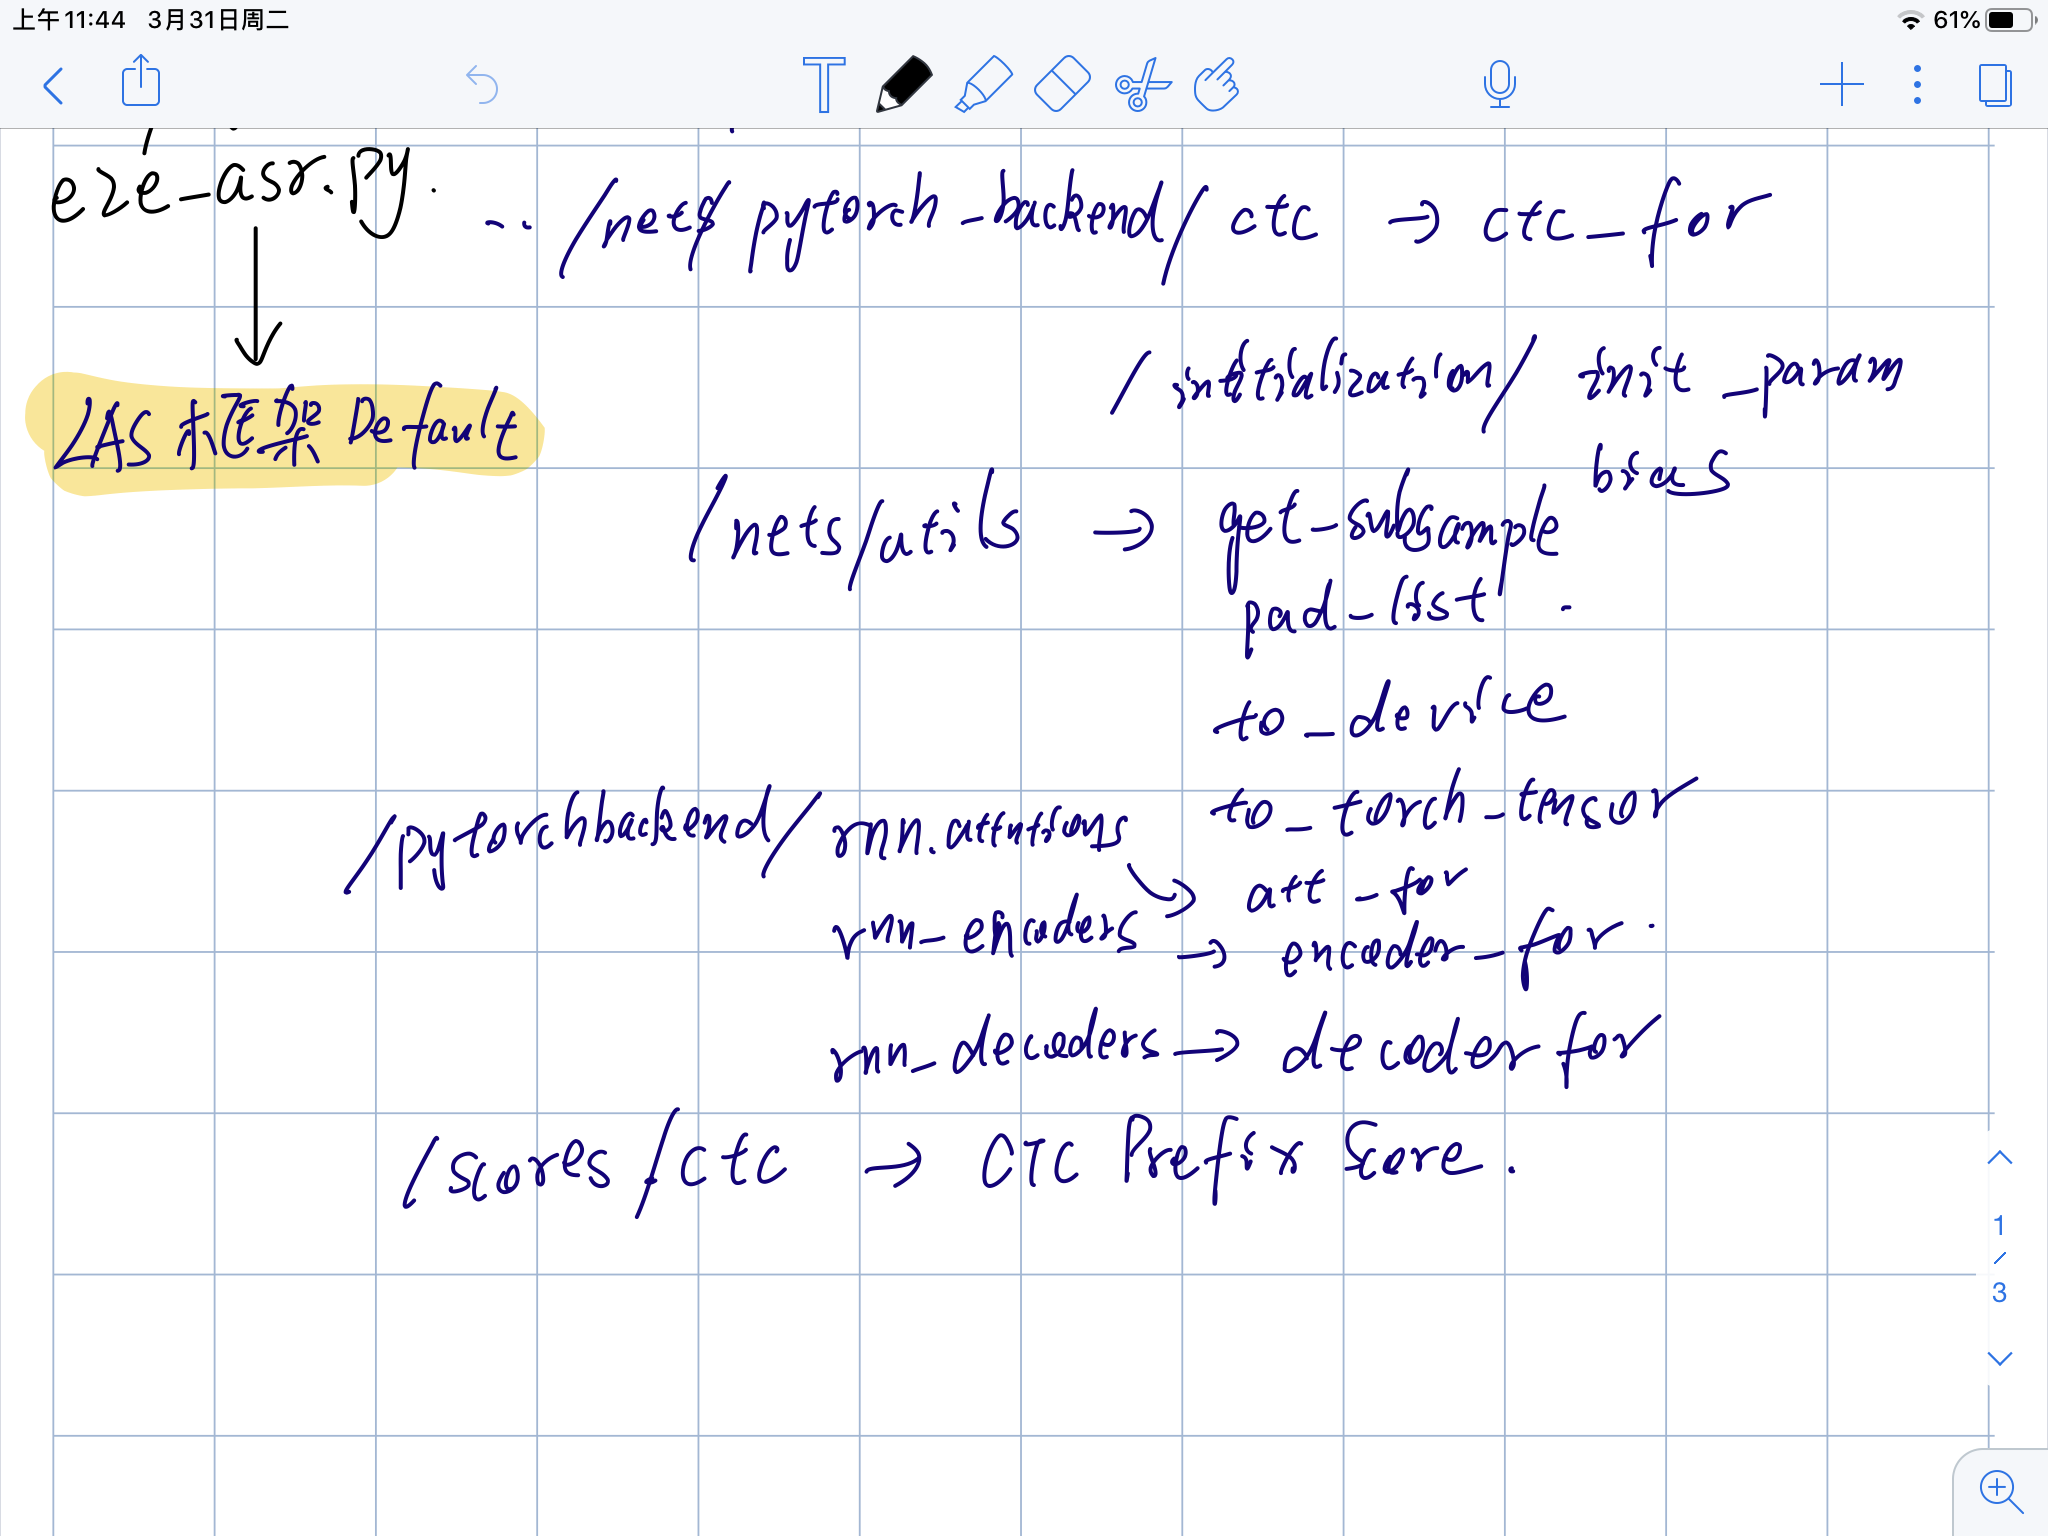 上午11:44 3月31日周二
61%
T
e2e_asr.py.
../nets/pytorch_backend/ctc → ctc_for
/intitialization/ init_param
bias
LAS框架Default
/nets/utils → get_subsample
pad_list.
to_device
to_torch_tensor
/pytorchbackend/rnn.attntions → att_for
rnn_encoders → encoder_for.
rnn_decoders → decoder for
/scores/ctc → CTC Prefix Score.
1
/
3